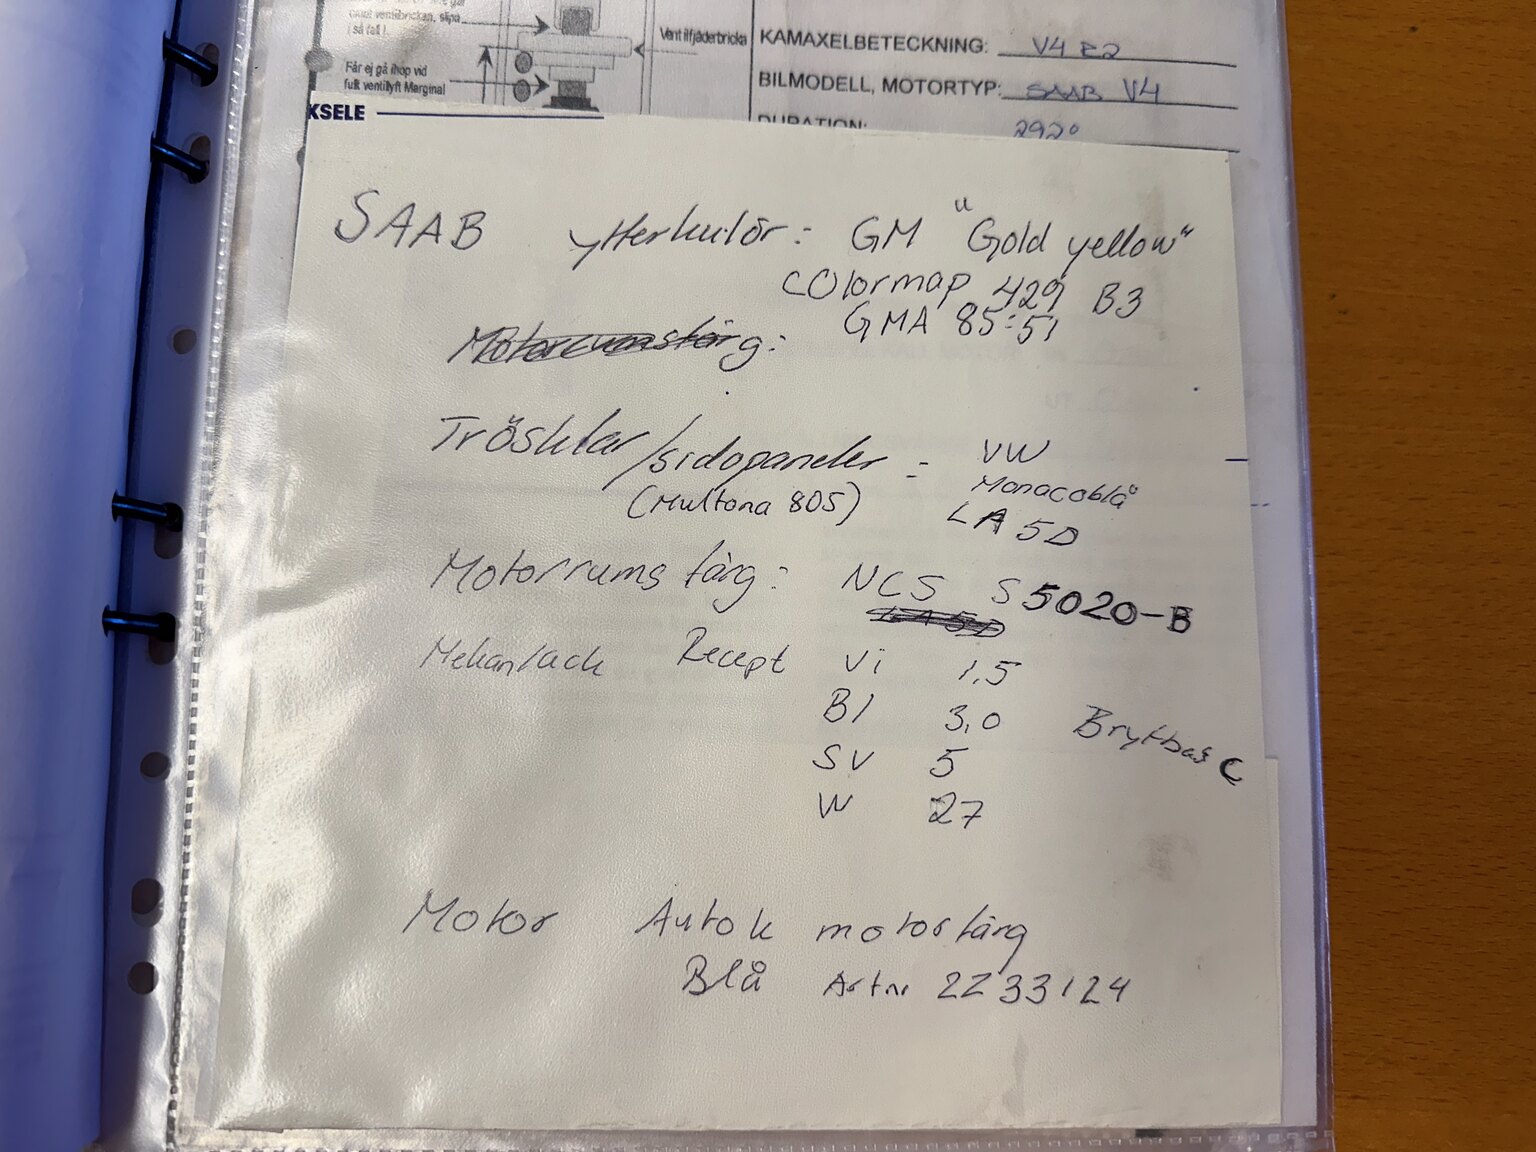 ventilbrickan, slipa
i så fall.
Får ej gå ihop vid
fullt ventillyft Marginal
Ventilfjäderbricka
KAMAXELBETECKNING: V4 E2
BILMODELL, MOTORTYP: SAAB V4
DURATION: 292°
KSELE
SAAB ytterkulör: GM "Gold yellow"
COlormap 429 B3
GMA 85:51
Motorrumsfärg:
Trösklar/sidopaneler = VW
(Multona 805) Monacoblå
LA 5D
Motorrums färg: NCS S5020-B
LA5D
Mekanlack Recept Vi 1,5
Bl 3,0 Brytbas C
SV 5
W 27
Motor Autok motorfärg
Blå Artnr 2Z33124